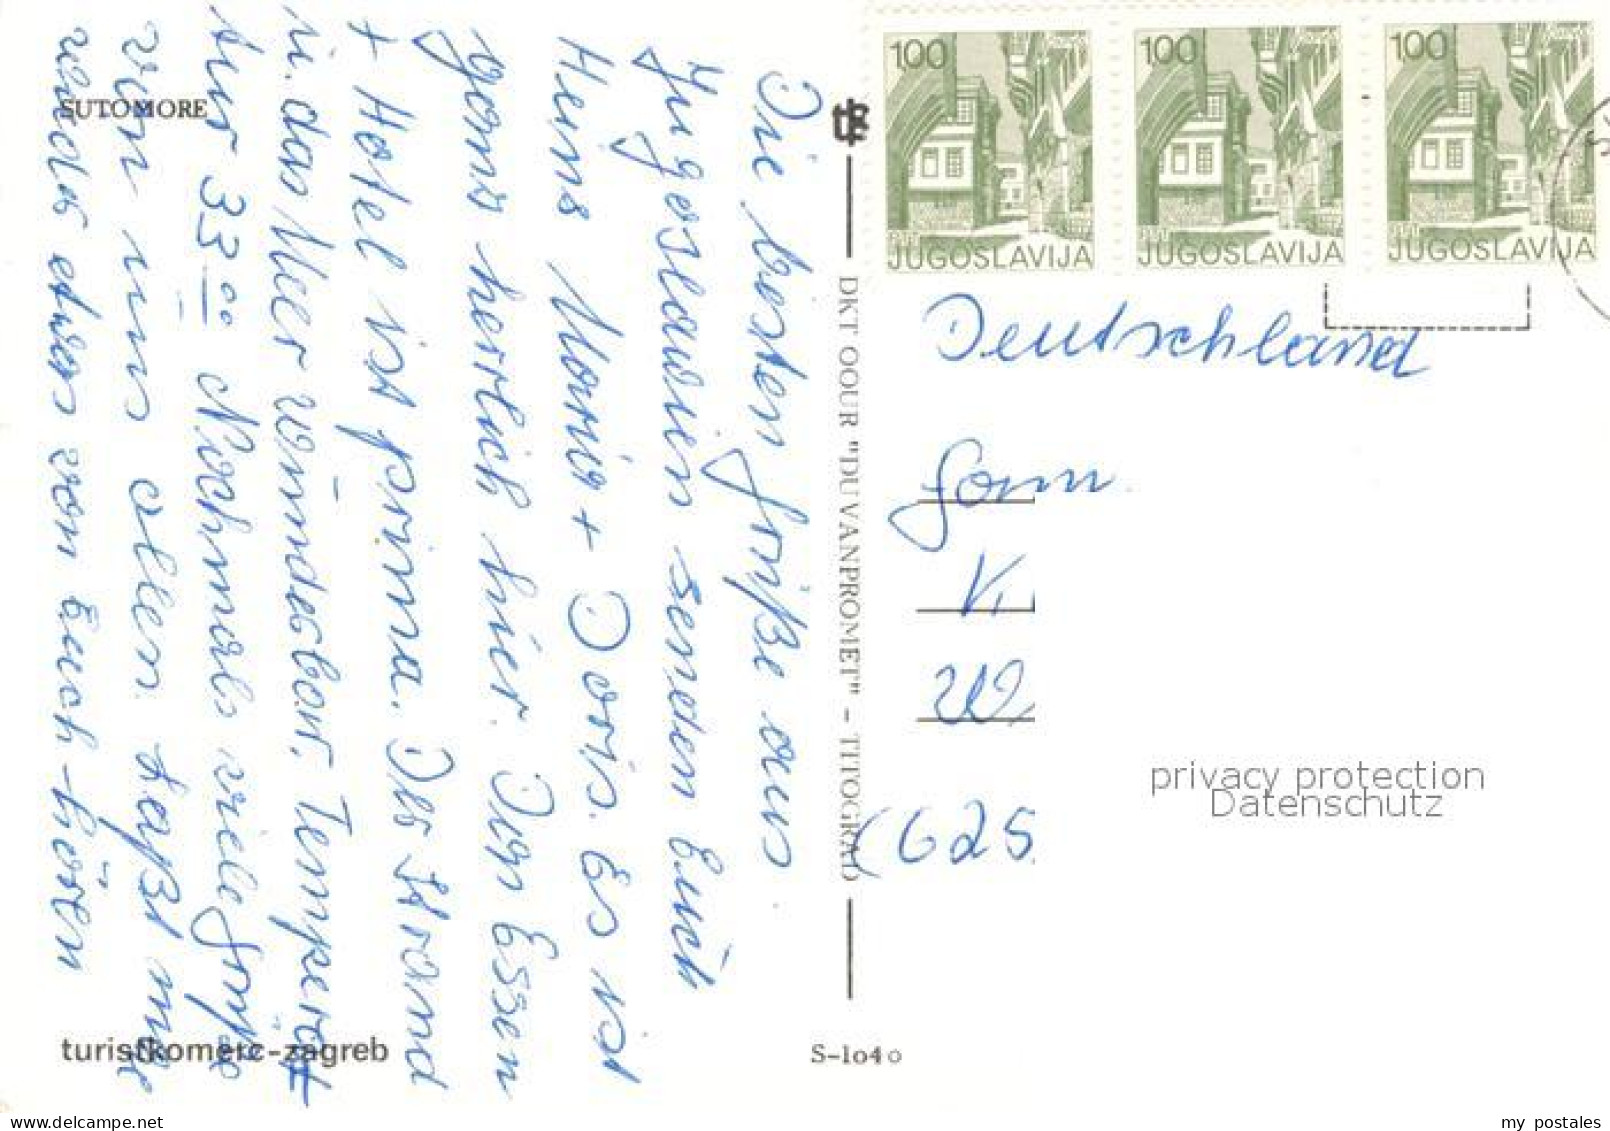 SUTOMORE
Die besten Grüße aus
Jugoslawien senden Euch
Heinz Maria + Doris. Es ist
ganz herrlich hier. Das Essen
+ Hotel ist prima. Der Strand
u. das Meer wunderbar. Temperat
tur 33 °° Nochmals viele Grüße
von uns allen. Laßt mal
wieder etwas von Euch hören
turistkomerc-zagreb
DKT OOUR "DUVANPROMET" – TITOGRAD
S-1040
1.00
JUGOSLAVIJA
1.00
JUGOSLAVIJA
1.00
JUGOSLAVIJA
Deutschland
Fam.
W
(625
privacy protection
Datenschutz
www.delcampe.net
my_postales